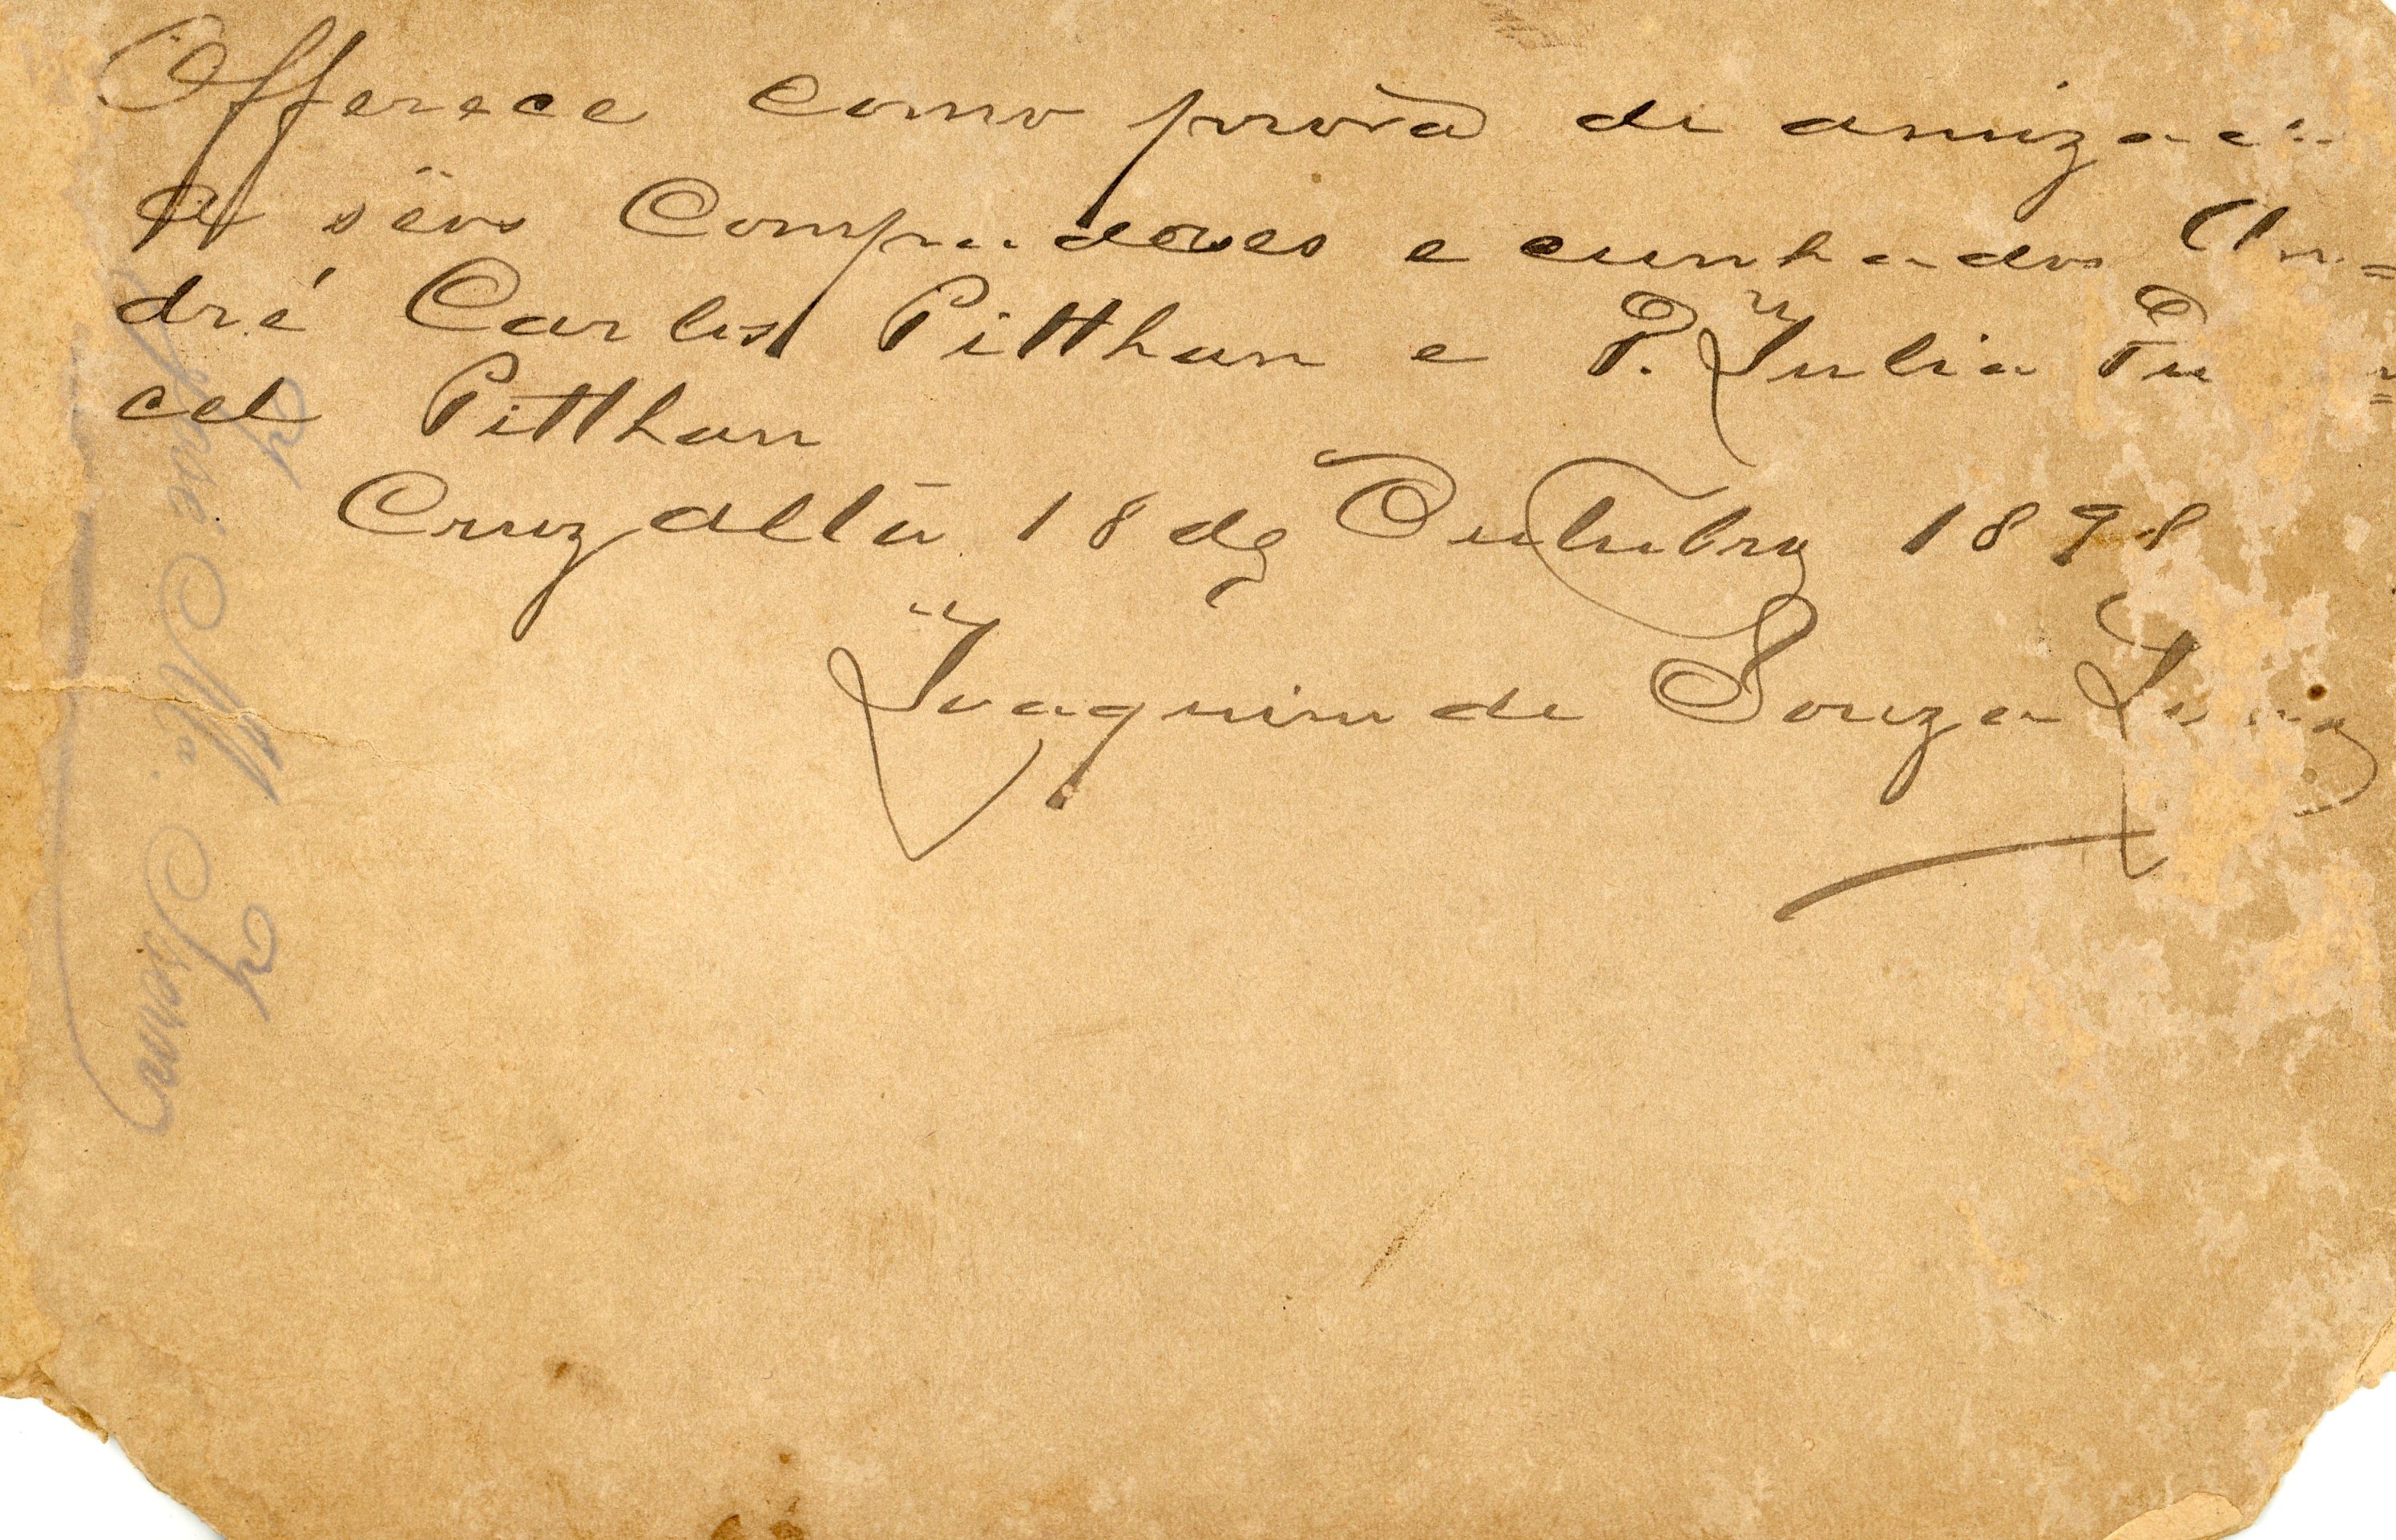 Offerece como prova de amizade
a sëos Compadres e cunhados An=
dré Carlos Pitthan e D. Julia
cel Pitthan
Cruz alta 18 de Outubro 1898
Joaquim de Souza
José Ma.